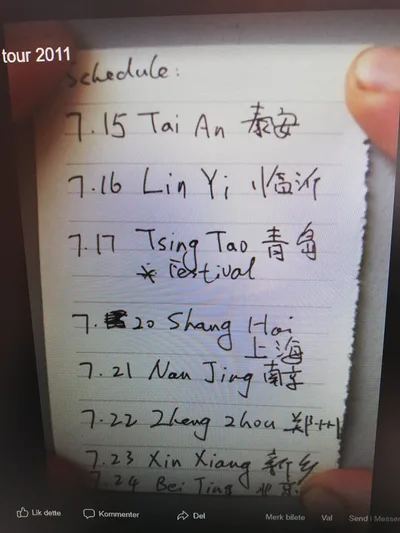 tour 2011
Schedule:
7.15 Tai An 泰安
7.16 Lin Yi 临沂
7.17 Tsing Tao 青岛
* Festival
7. 20 Shang Hai
上海
7.21 Nan Jing 南京
7.22 Zheng Zhou 郑州
7.23 Xin Xiang 新乡
7.24 Bei Jing 北京
Lik dette Kommenter Del Merk bilete Val Send i Messen